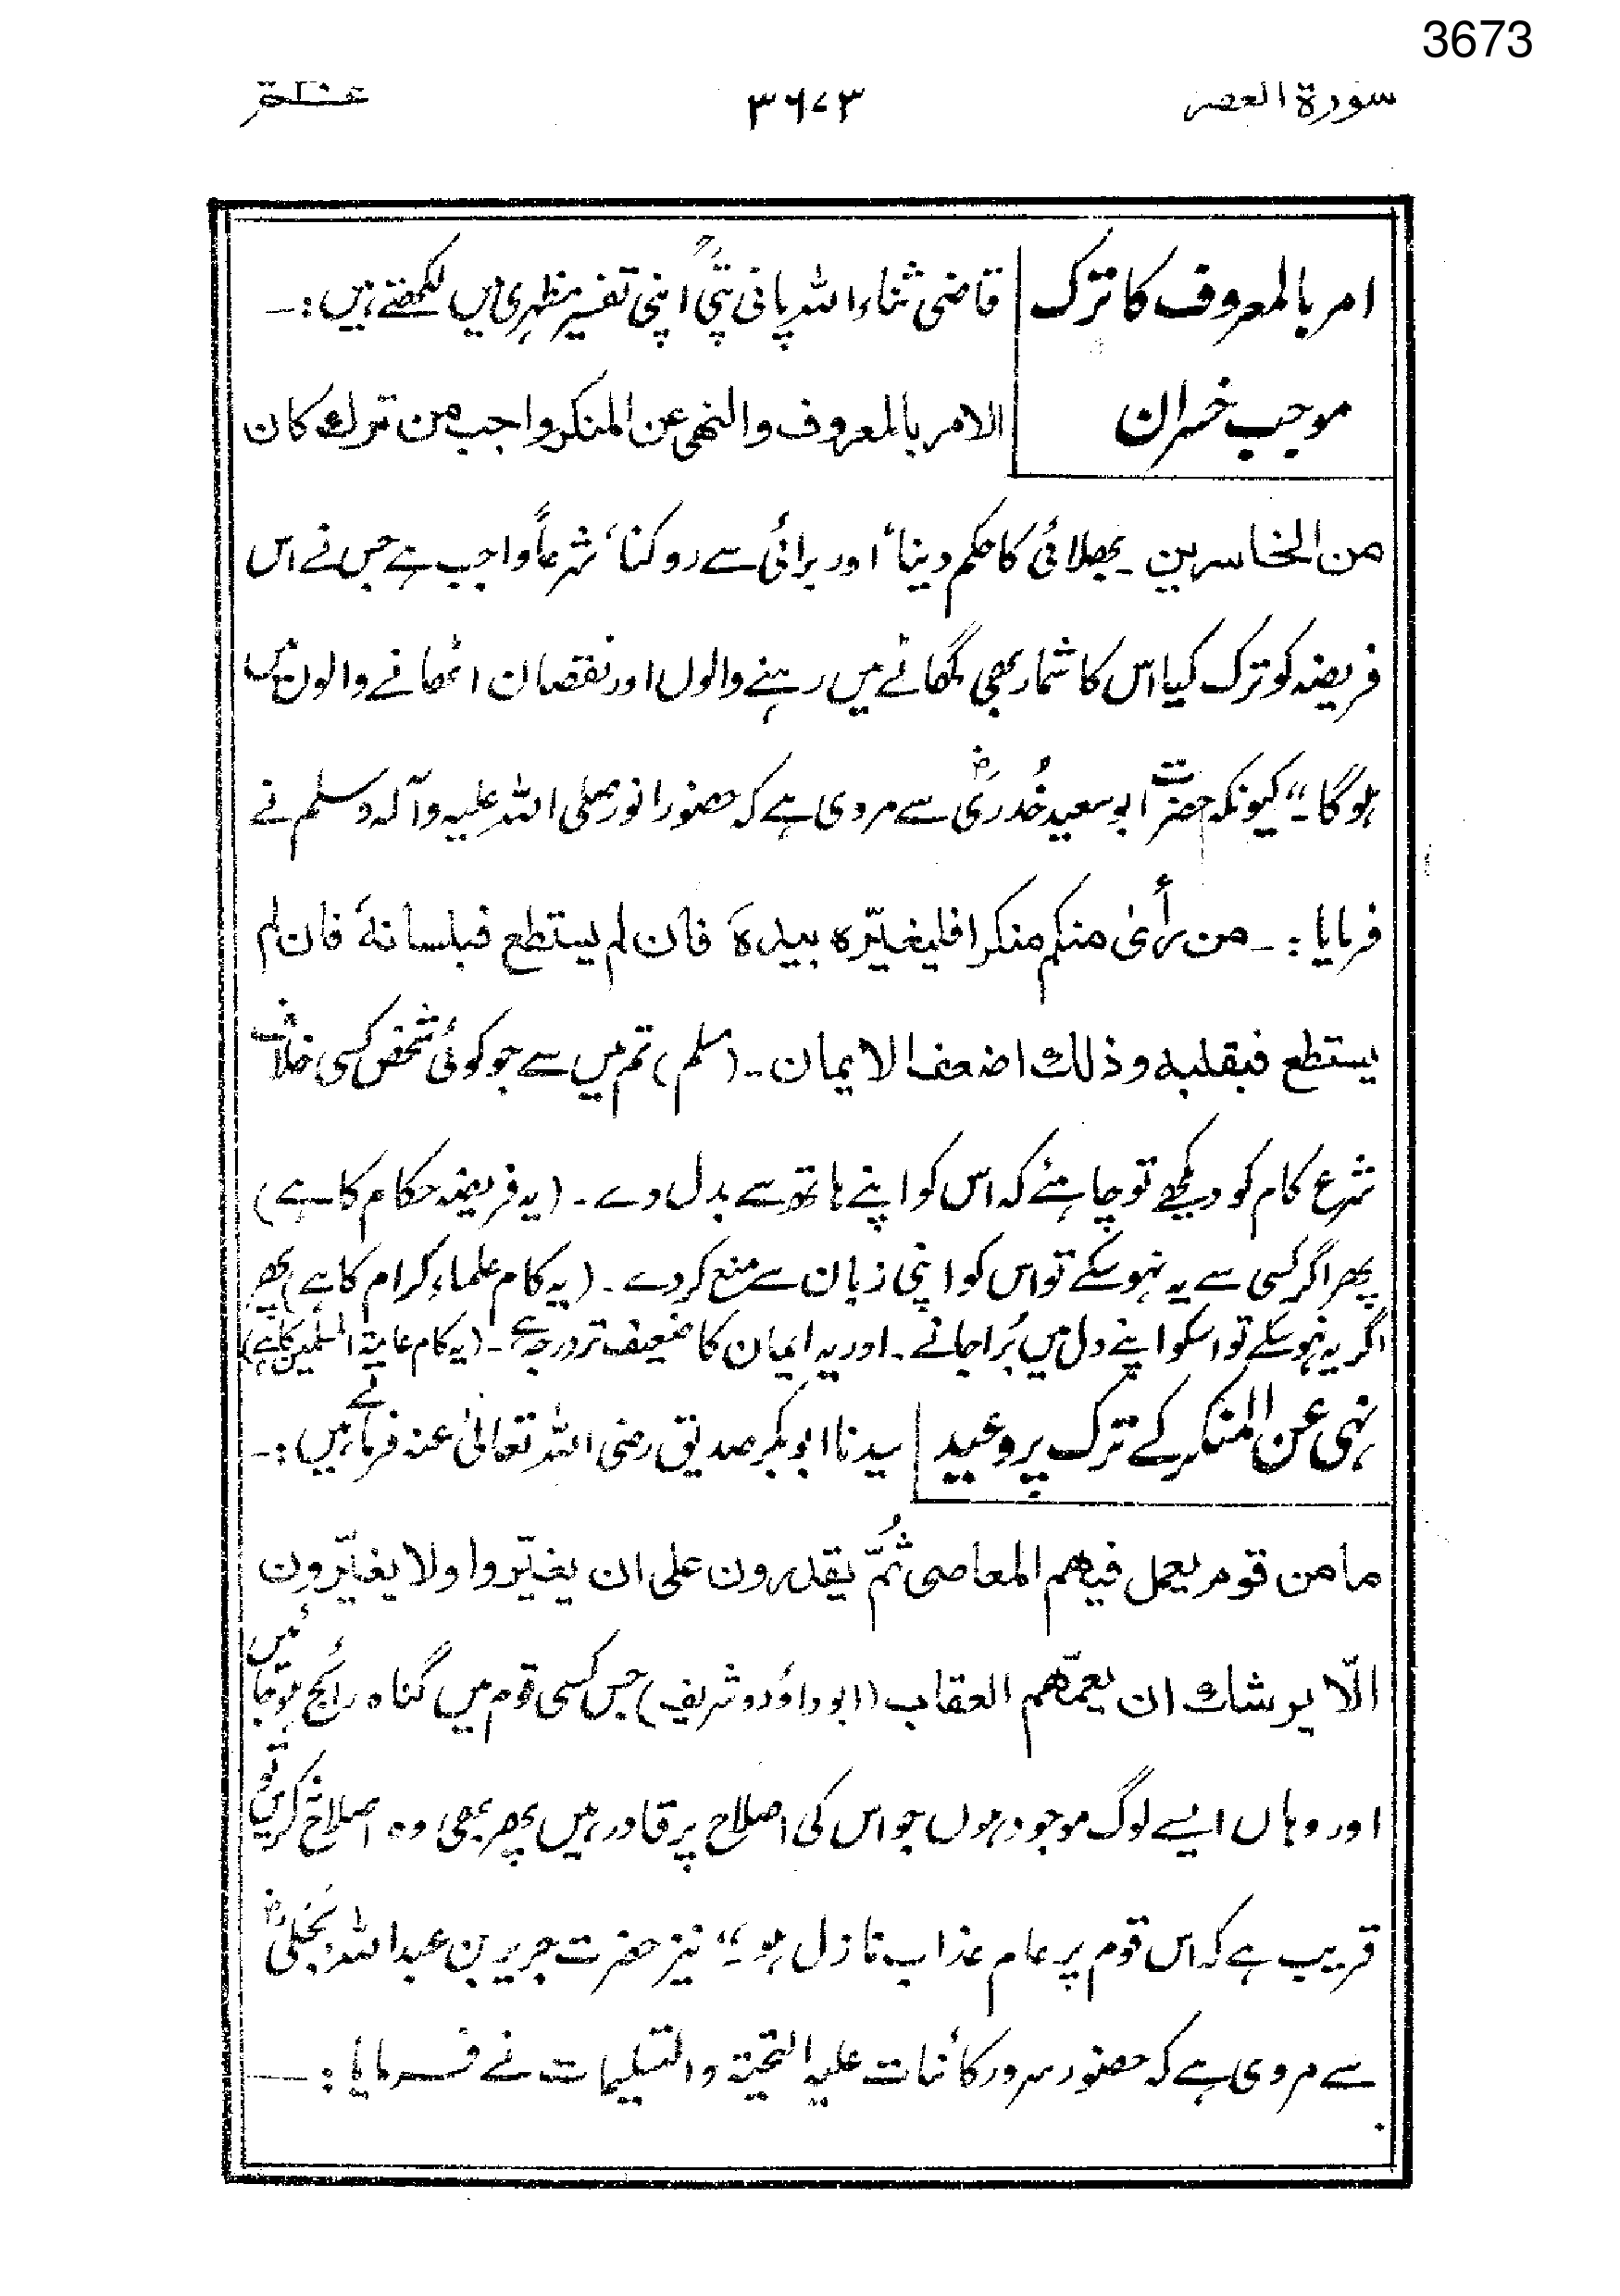 3673
سورة العصر ۳۶۷۳ عـم
امر بالمعروف کا ترک قاضی ثناء اللہ پانی پتیؒ اپنی تفسیر مظہری میں لکھتے ہیں :-
موجب خسران الامر بالمعروف والنھی عن المنکر واجب من ترك کان
من الخاسرین۔ بھلائی کا حکم دینا، اور برائی سے روکنا، شرعاً واجب ہے جس نے اس
فریضہ کو ترک کیا اس کا شمار بھی گھاٹے میں رہنے والوں اور نقصان اٹھانے والوں میں
ہوگا۔“ کیونکہ حضرت ابو سعید خُدریؓ سے مروی ہے کہ حضور انور صلی اللہ علیہ وآلہ وسلم نے
فرمایا :- من رأیٰ منکم منکرا فلیغیّرہ بیدہ فان لم یستطع فبلسانہ فان لم
یستطع فبقلبه وذلك اضعف الایمان۔ (مسلم) تم میں سے جو کوئی شخص کسی خلاف
شرع کام کو دیکھے تو چاہئے کہ اس کو اپنے ہاتھ سے بدل دے۔ (یہ فریضہ حکام کا ہے)
پھر اگر کسی سے یہ نہوسکے تو اس کو اپنی زبان سے منع کردے۔ (یہ کام علماءِ کرام کا ہے) پھر
اگر یہ نہوسکے تو اسکو اپنے دل میں بُرا جانے۔ اور یہ ایمان کا ضعیف تر درجہ ہے۔ (یہ کام عامۃ المسلمین کا ہے)
نہی عن المنکر کے ترک پر وعید سیدنا ابو بکر صدیق رضی اللہ تعالیٰ عنہ فرماتے ہیں :-
ما من قوم یعمل فیھم المعاصی ثُمّ یقدرون علی ان یغیّروا ولا یغیّرون
الّا یوشك ان یعمّھم العقاب (ابو داؤد شریف) جس کسی قوم میں گناہ رائج ہوجائیں
اور وہاں ایسے لوگ موجود ہوں جو اس کی اصلاح پر قادر ہیں پھر بھی وہ اصلاح نہ کریں تو
قریب ہے کہ اس قوم پر عام عذاب نازل ہو۔“ نیز حضرت جریر بن عبداللہ بَجَلیؓ
سے مروی ہے کہ حضور سرور کائنات علیہ التحیۃ والتسلیمات نے فرمایا :-